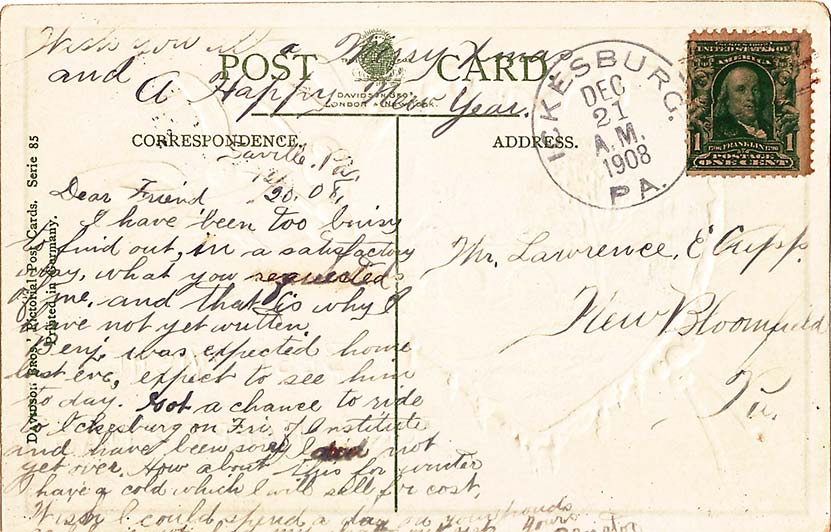 Wish you all a Merry Xmas
and A Happy New Year.
POST CARD.
DAVIDSON BROS.
LONDON & NEW YORK.
CORRESPONDENCE.
ADDRESS.
ICKESBURG.
DEC
21
A.M.
1908
PA.
UNITED STATES OF
AMERICA
1706 FRANKLIN 1790
1 1
POSTAGE
ONE CENT
Saville, Pa.
12, 20, 08,
Dear Friend
I have been too buisy
to find out, in a satisfactory
way, what you requested
of me, and that is why I
have not yet written.
Benj. was expected home
last eve, expect to see him
to day. Got a chance to ride
to Ickesburg on Fri. of Institute
and have been sore and not
yet over. How about this for winter
I have a cold which I will sell for cost.
Wish I could spend a day
Yours
Mr. Lawrence, E Cupp.
New Bloomfield
Pa.
Davidson Bros.' Pictorial Post Cards. Serie 85
Printed in Germany.